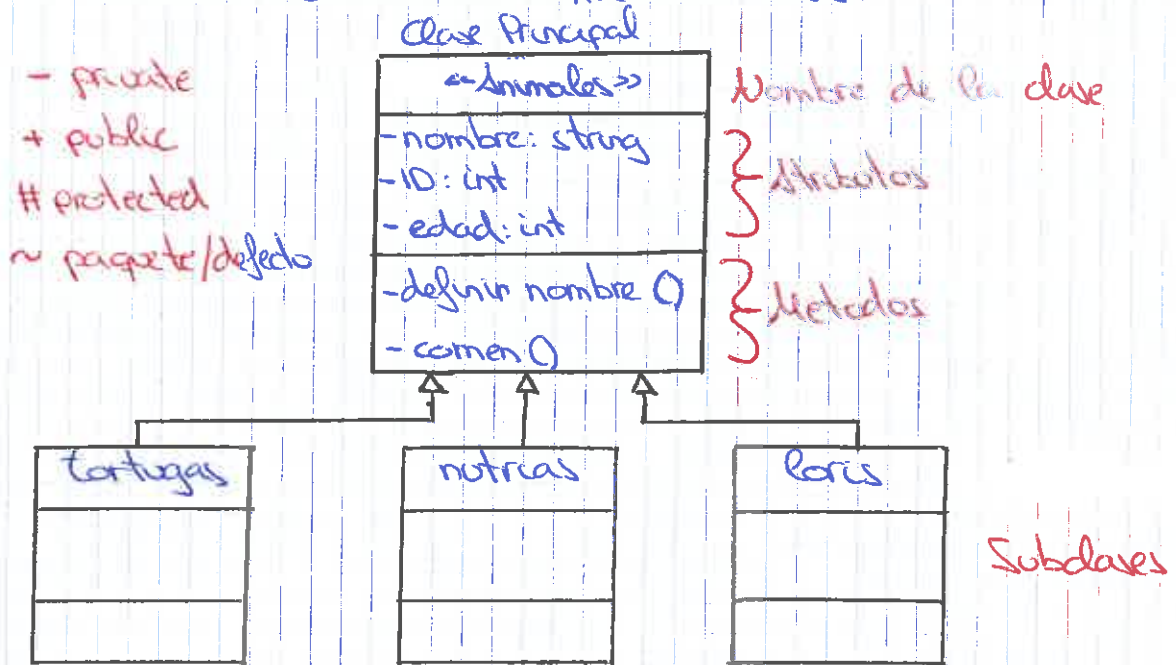 Clase Principal
- private
+ public
# protected
~ paquete/defecto
<<Animales>>
Nombre de la clase
- nombre: string
- ID: int
- edad: int
Atributos
- definir nombre ()
- comen ()
Metodos
tortugas
nutrias
loris
Subclases